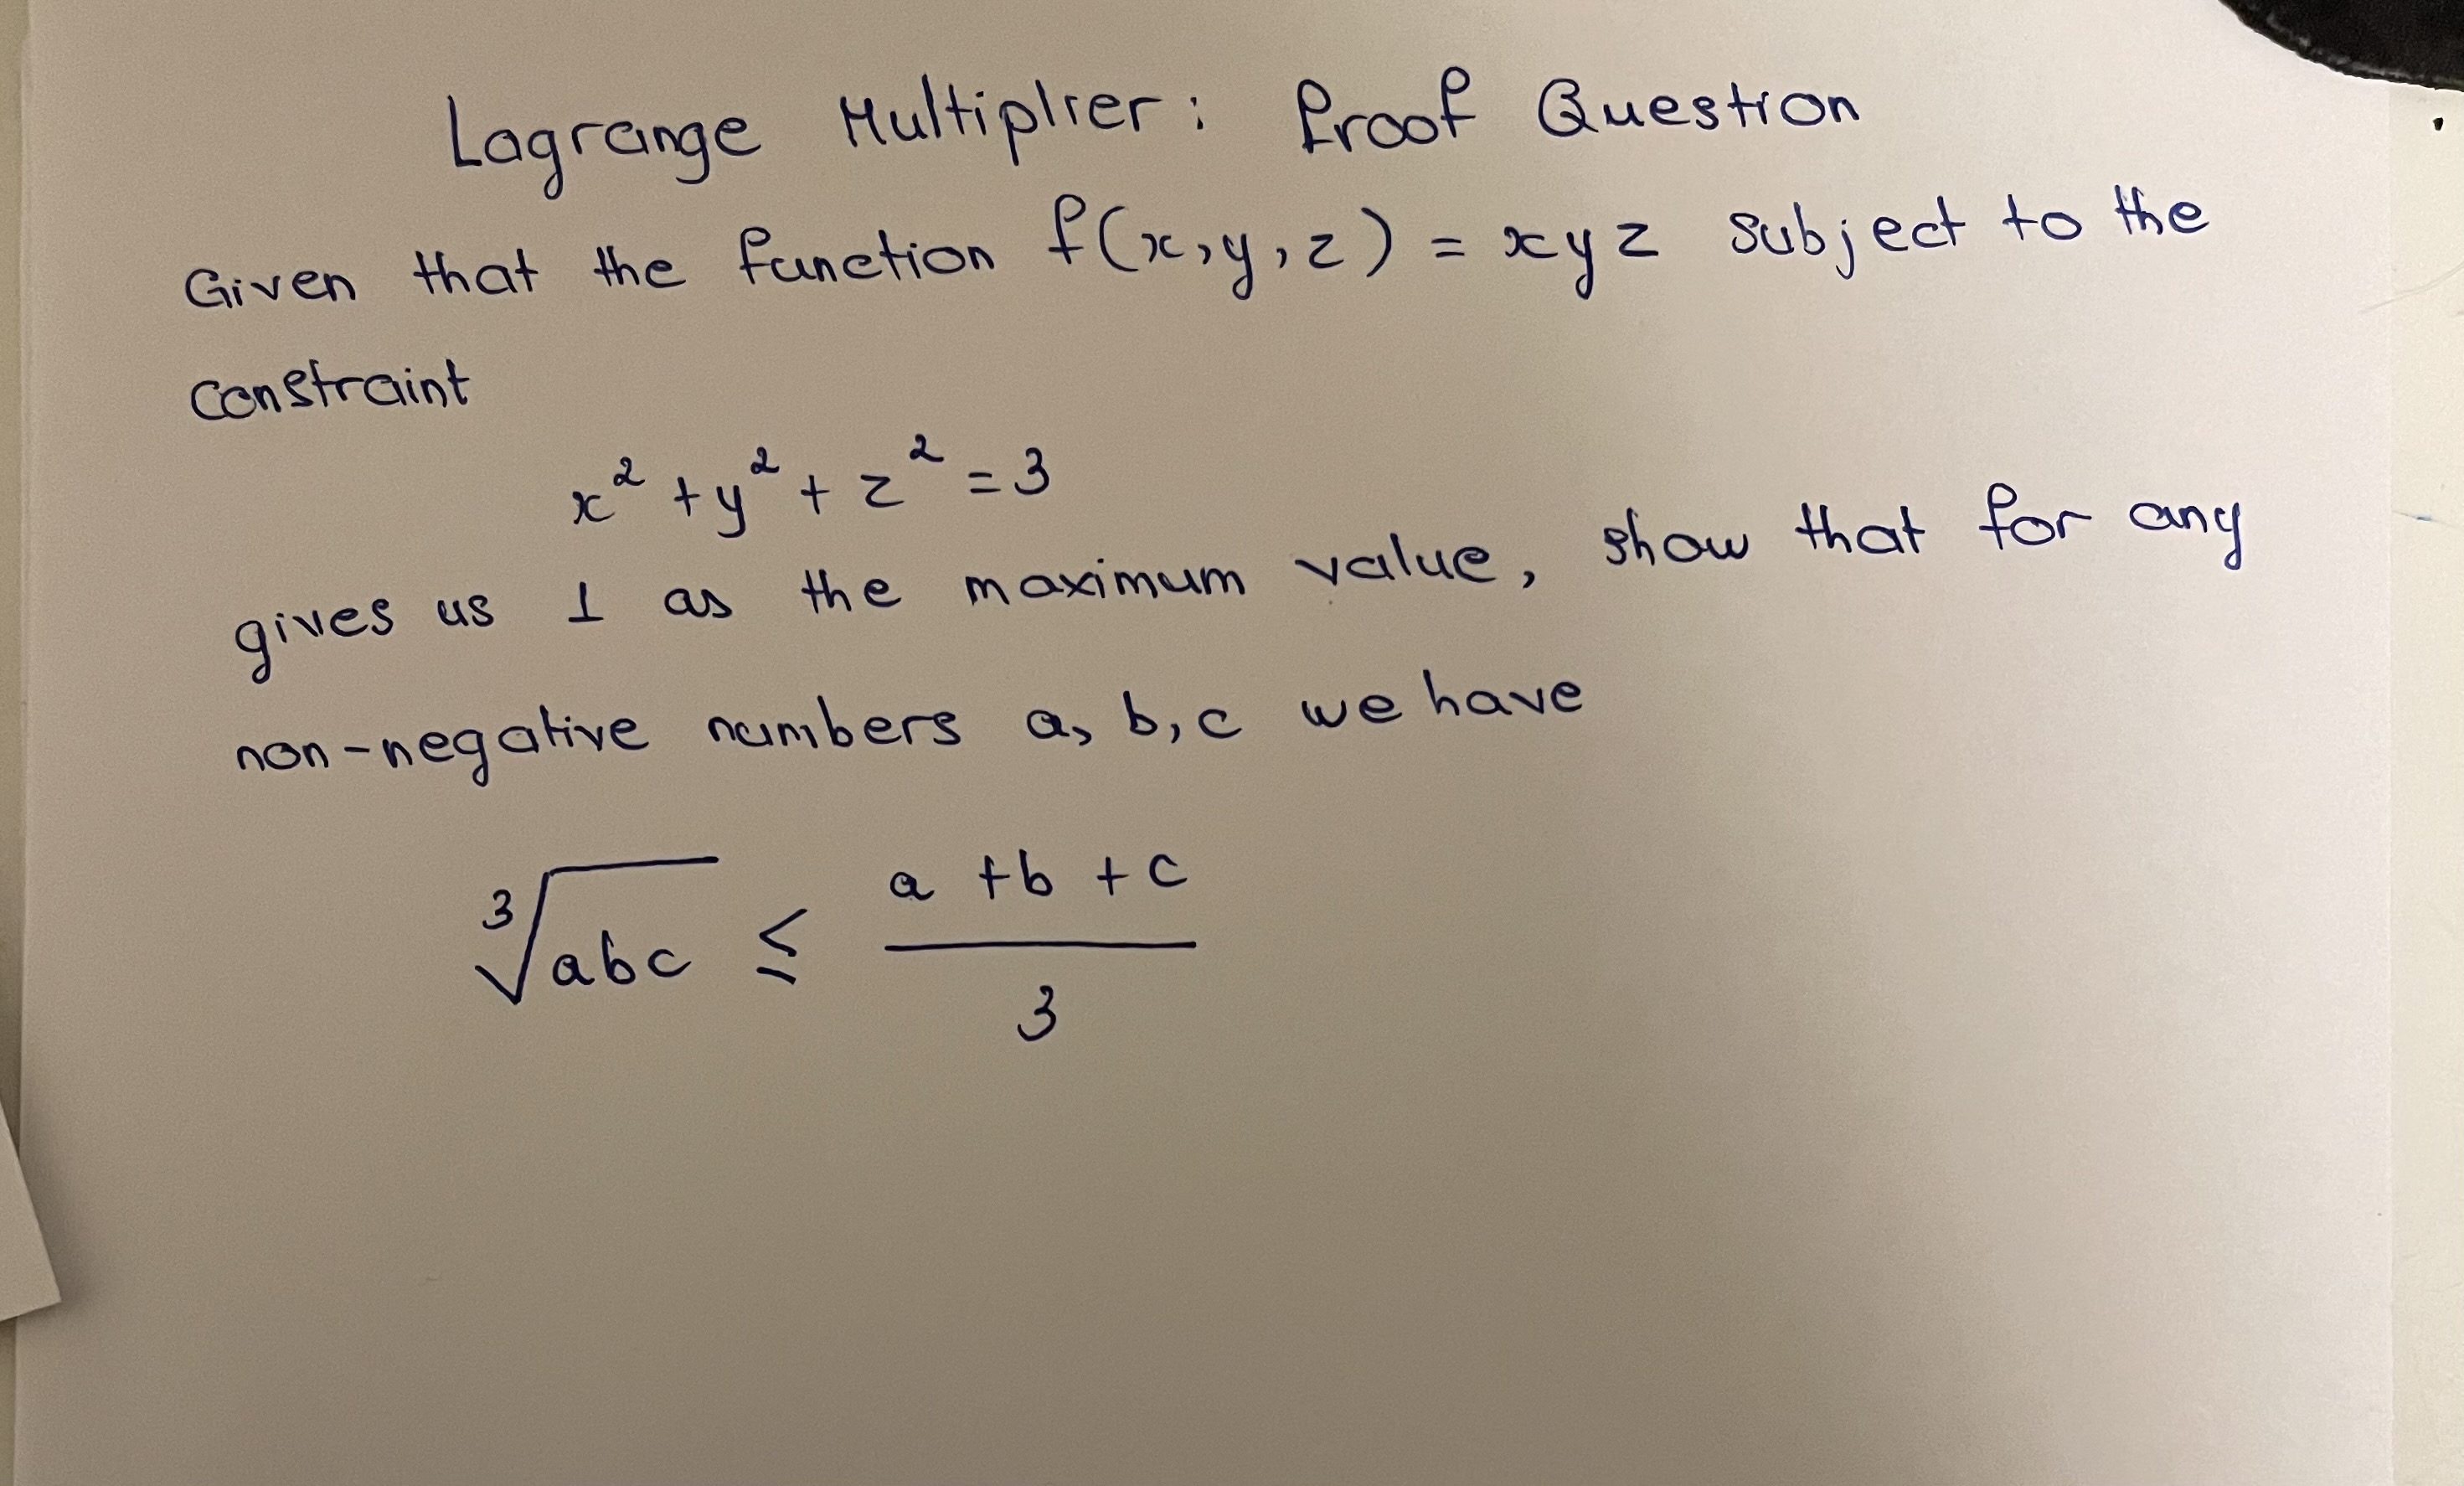 Lagrange Multiplier: Proof Question
Given that the function f(x,y,z) = xyz subject to the
constraint
x² + y² + z² = 3
gives us 1 as the maximum value, show that for any
non-negative numbers a, b, c we have
∛abc ≤ (a + b + c)/3